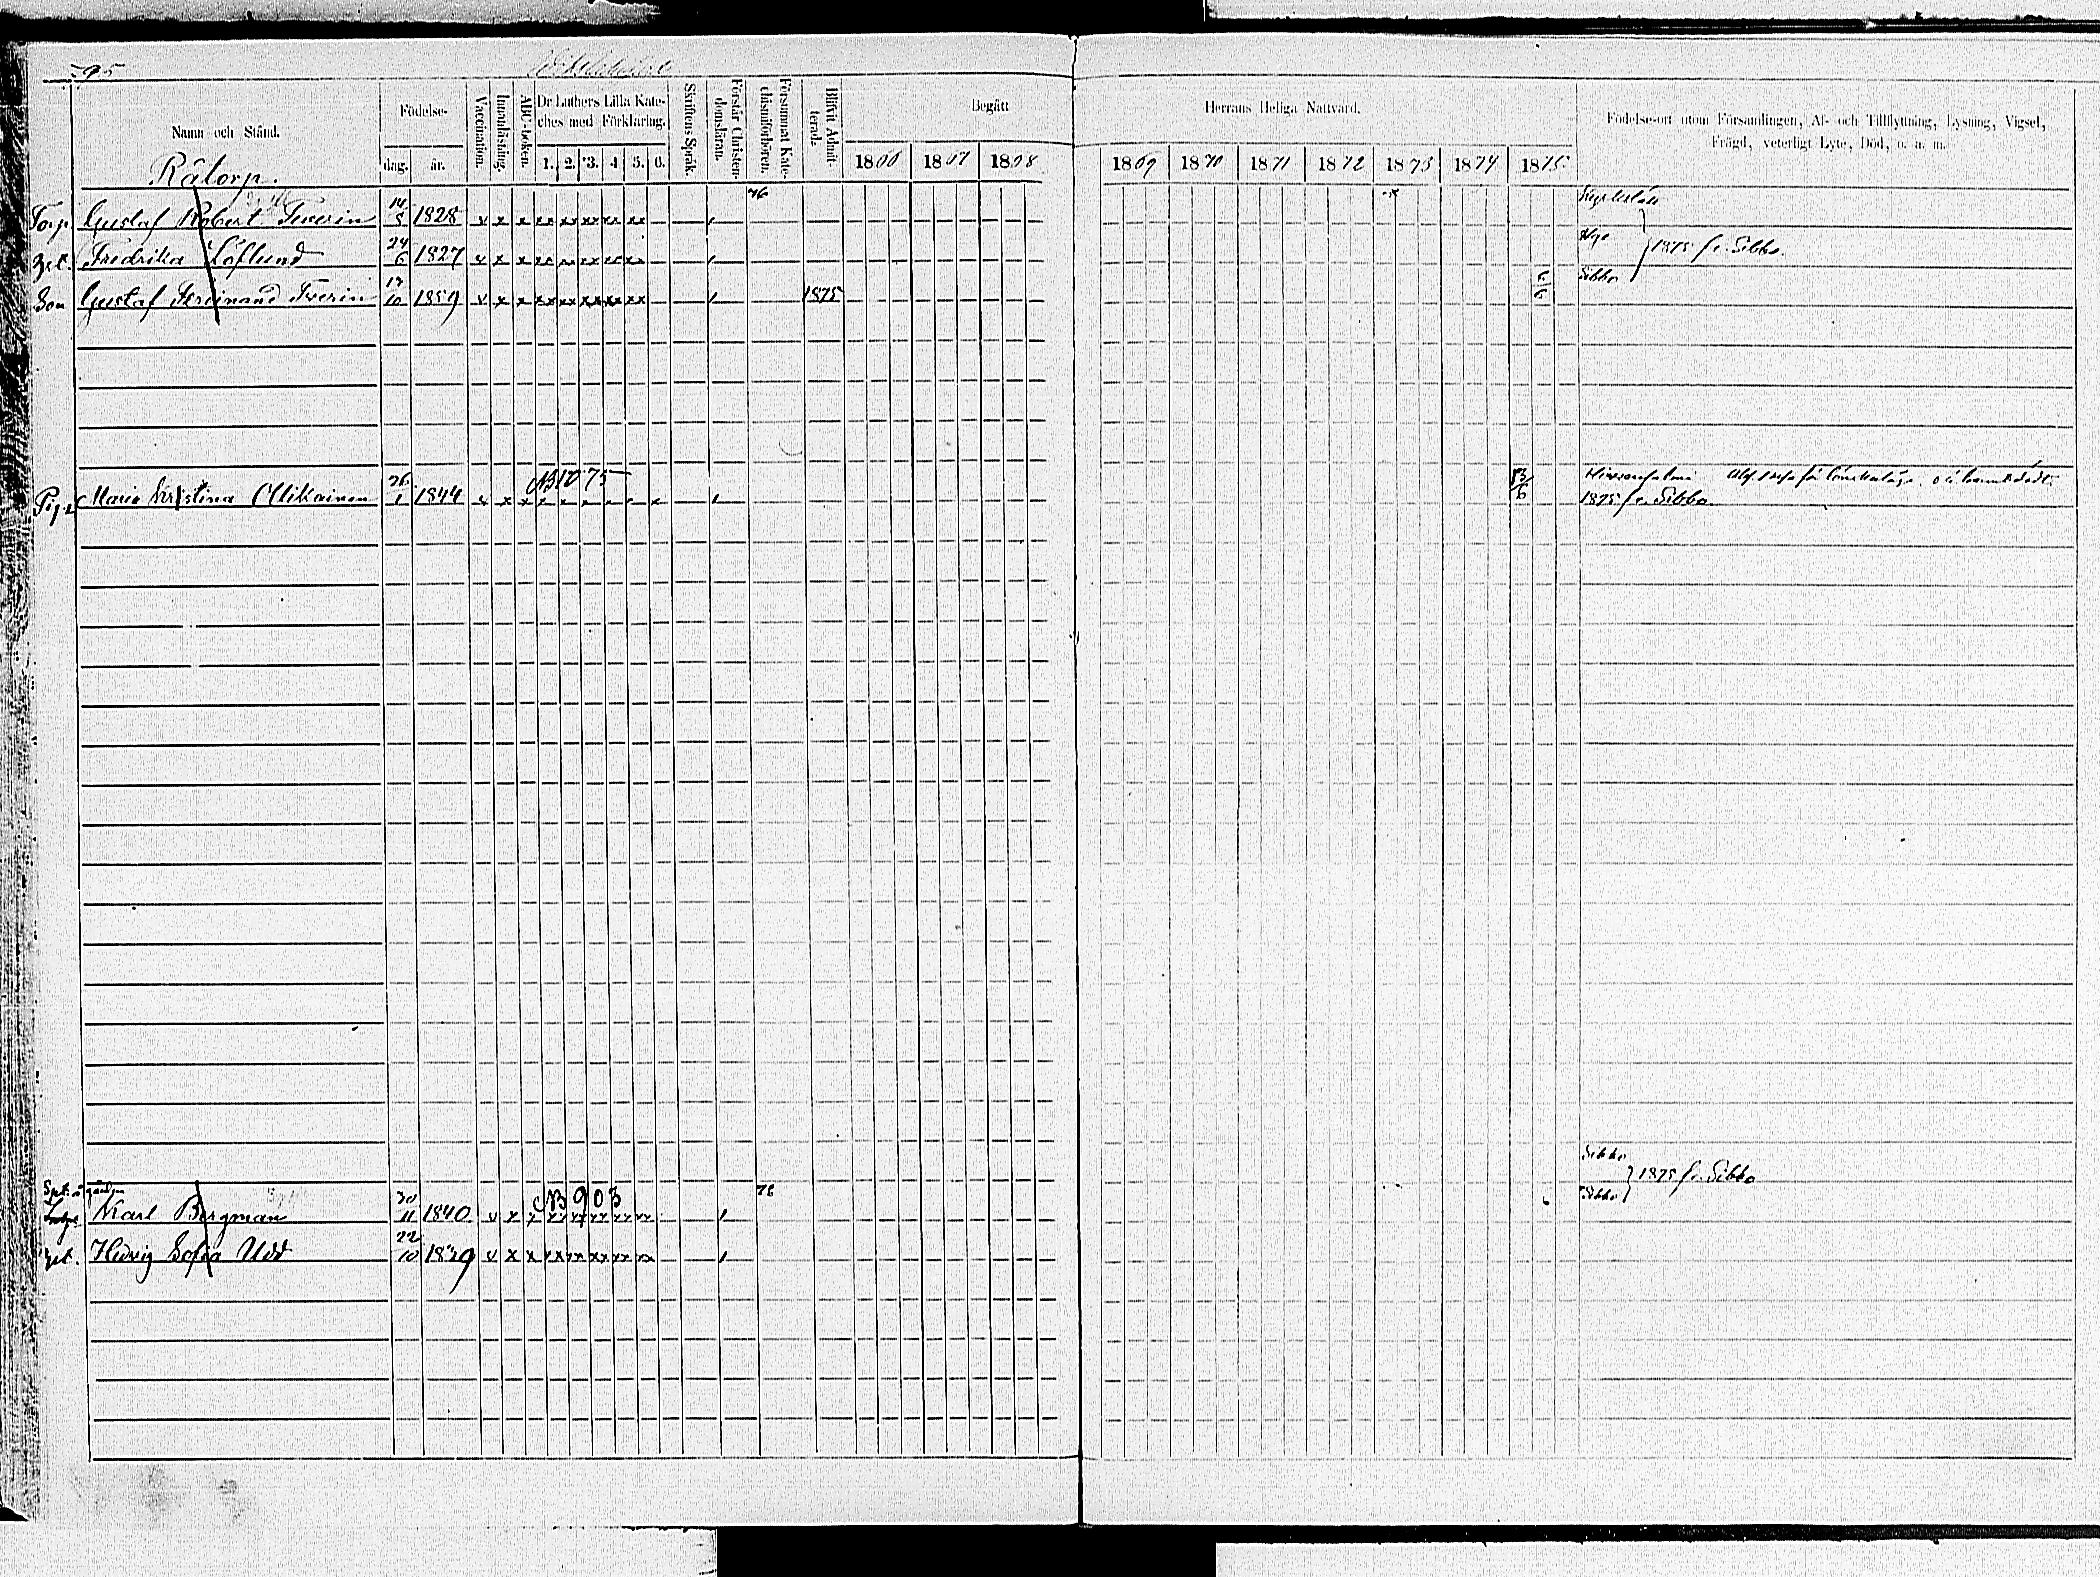 Namn och Stånd.
Födelse-
dag. år.
Vaccination.
Innanläsning.
ABC-boken.
Dr Luthers Lilla Kate-
ches med Förklaring.
1. 2. 3. 4 5. 6.
Skriftens Språk.
Förstår Christen-
domsläran.
Försummat Kate-
chismiförhören.
Blifvit Admit-
terad.
Begått
1866 1867 1868
Herrans Heliga Nattvard.
1869 1870 1871 1872 1873 1874 1875
Födelse-ort utom Församlingen, Af- och Tillflyttning, Lysning, Vigsel,
Frägd, veterligt Lyte, Död, o. s. m.
Råtorp.
Torp. Gustaf Robert Tverin 14/8 1828 76
Fredrika Löflund 24/6 1827 1875 fr. Sibbo.
Son Gustaf Ferdinand Tverin 10 1859 1875 Sibbo
Maria Kristina Ollikainen 26/1 1844 NB 10 75
1875 fr. Sibbo
Karl Bergman 30/11 1840 NB 903 76 Sibbo 1875 fr. Sibbo
Hedvig Sofia Udd 22/10 1839 Sibbo